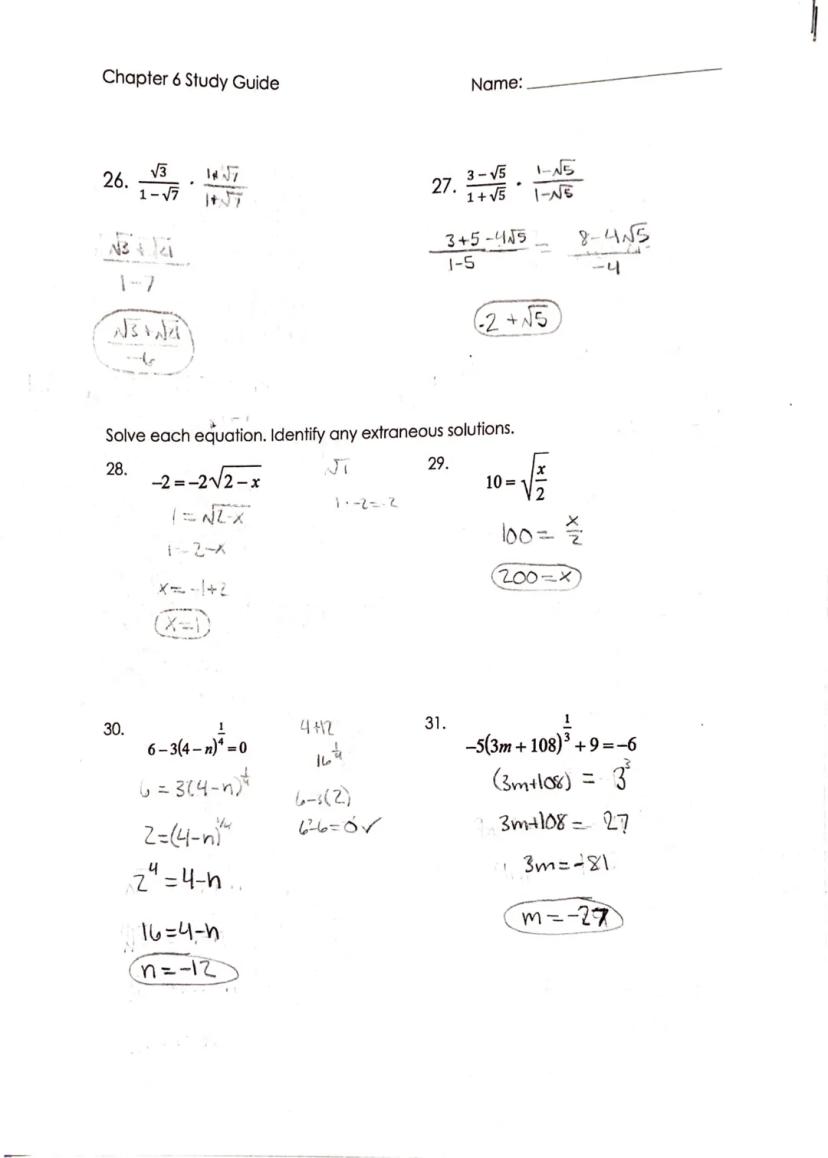 Chapter 6 Study Guide
Name:
26. √3/(1-√7) · (1+√7)/(1+√7)
(√3 + √21)/(1-7)
(√3 + √21)/-6
27. (3-√5)/(1+√5) · (1-√5)/(1-√5)
(3+5-4√5)/(1-5) = (8-4√5)/-4
-2 + √5
Solve each equation. Identify any extraneous solutions.
28. -2 = -2√(2-x)
1 = √(2-x)
1 = 2-x
x = -1+2
x=1
√1
1·-2=-2
29. 10 = √(x/2)
100 = x/2
200 = x
30. 6-3(4-n)^(1/4) = 0
6 = 3(4-n)^(1/4)
2=(4-n)^(1/4)
2^4 = 4-n
16=4-n
n=-12
4+12
16^(1/4)
6-3(2)
6-6=0✓
31. -5(3m+108)^(1/3) + 9 = -6
(3m+108) = 3^3
3m+108 = 27
3m=-81
m=-27